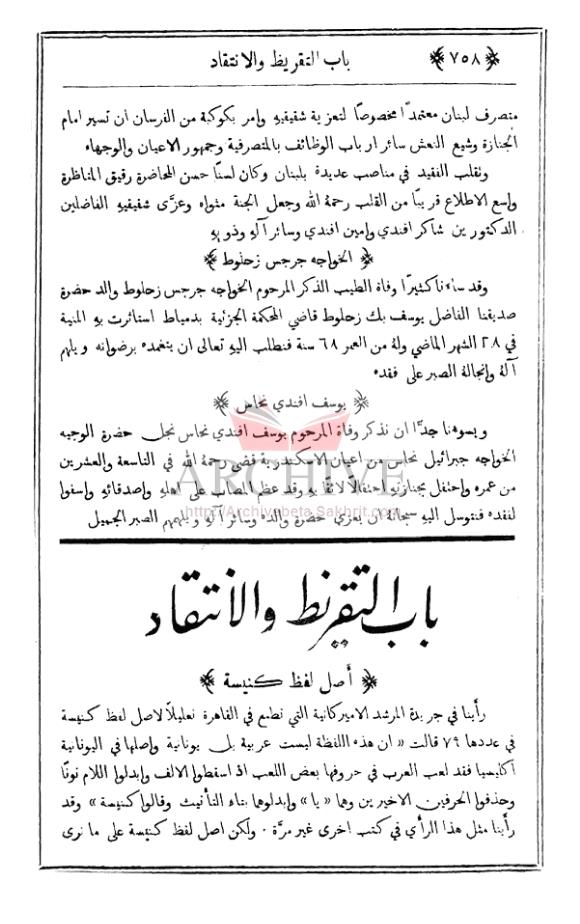 ﴿٧٥٨﴾ باب التقريظ والانتقاد
متصرف لبنان معتمدًا مخصوصًا لتعزية شقيقيهِ وامر بكوكبة من الفرسان ان تسير امام
الجنازة وشيع النعش سائر ارباب الوظائف بالمتصرفية وجمهور الاعيان والوجهاء
وتقلب الفقيد في مناصب عديدة بلبنان وكان لسنًا حسن المحاضرة رقيق المناظرة
واسع الاطلاع قريبًا من القلب رحمهُ الله وجعل الجنة مثواه وعزَّى شقيقيهِ الفاضلين
الدكتورين شاكر افندي وامين افندي وسائر آلهِ وذويهِ
﴿ الخواجه جرجس زحلوط ﴾
وقد ساءنا كثيرًا وفاة الطيب الذكر المرحوم الخواجه جرجس زحلوط والد حضرة
صديقنا الفاضل يوسف بك زحلوط قاضي المحكمة الجزئية بدمياط استاثرت بهِ المنية
في ٢٨ الشهر الماضي ولهُ من العمر ٦٨ سنة فنطلب اليهِ تعالى ان يتغمده برضوانه ويلهم
آلهُ وانجالهُ الصبر على فقده
﴿ يوسف افندي نحاس ﴾
ويسوءنا جدًّا ان نذكر وفاة المرحوم يوسف افندي نحاس نجل حضرة الوجيه
الخواجه جبرائيل نحاس من اعيان الاسكندرية قضى رحمهُ الله في التاسعة والعشرين
من عمره واحتفل بجنازتهِ احتفالًا لائقًا بهِ وقد عظم المصاب على اهلهِ واصدقائهِ واسفوا
لفقده فنتوسل اليهِ سبحانهُ ان يعزي حضرة والده وسائر آلهِ ويلهمهم الصبر الجميل
ARCHIVE
http://Archivebeta.Sakhrit.com
باب التقريظ والانتقاد
﴿ أصل لفظ كنيسة ﴾
رأينا في جريدة المرشد الاميركانية التي تطبع في القاهرة تعليلًا لاصل لفظ كنيسة
في عددها ٧٩ قالت « ان هذه اللفظة ليست عربية بل يونانية واصلها في اليونانية
اكليسيا فقد لعب العرب في حروفها بعض اللعب اذ اسقطوا الالف وابدلوا اللام نونًا
وحذفوا الحرفين الاخيرين وهما « يا » وابدلوها بتاء التأنيث وقالوا كنيسة » وقد
رأينا مثل هذا الرأي في كتب اخرى غير مرَّة . ولكن اصل لفظ كنيسة على ما نرى